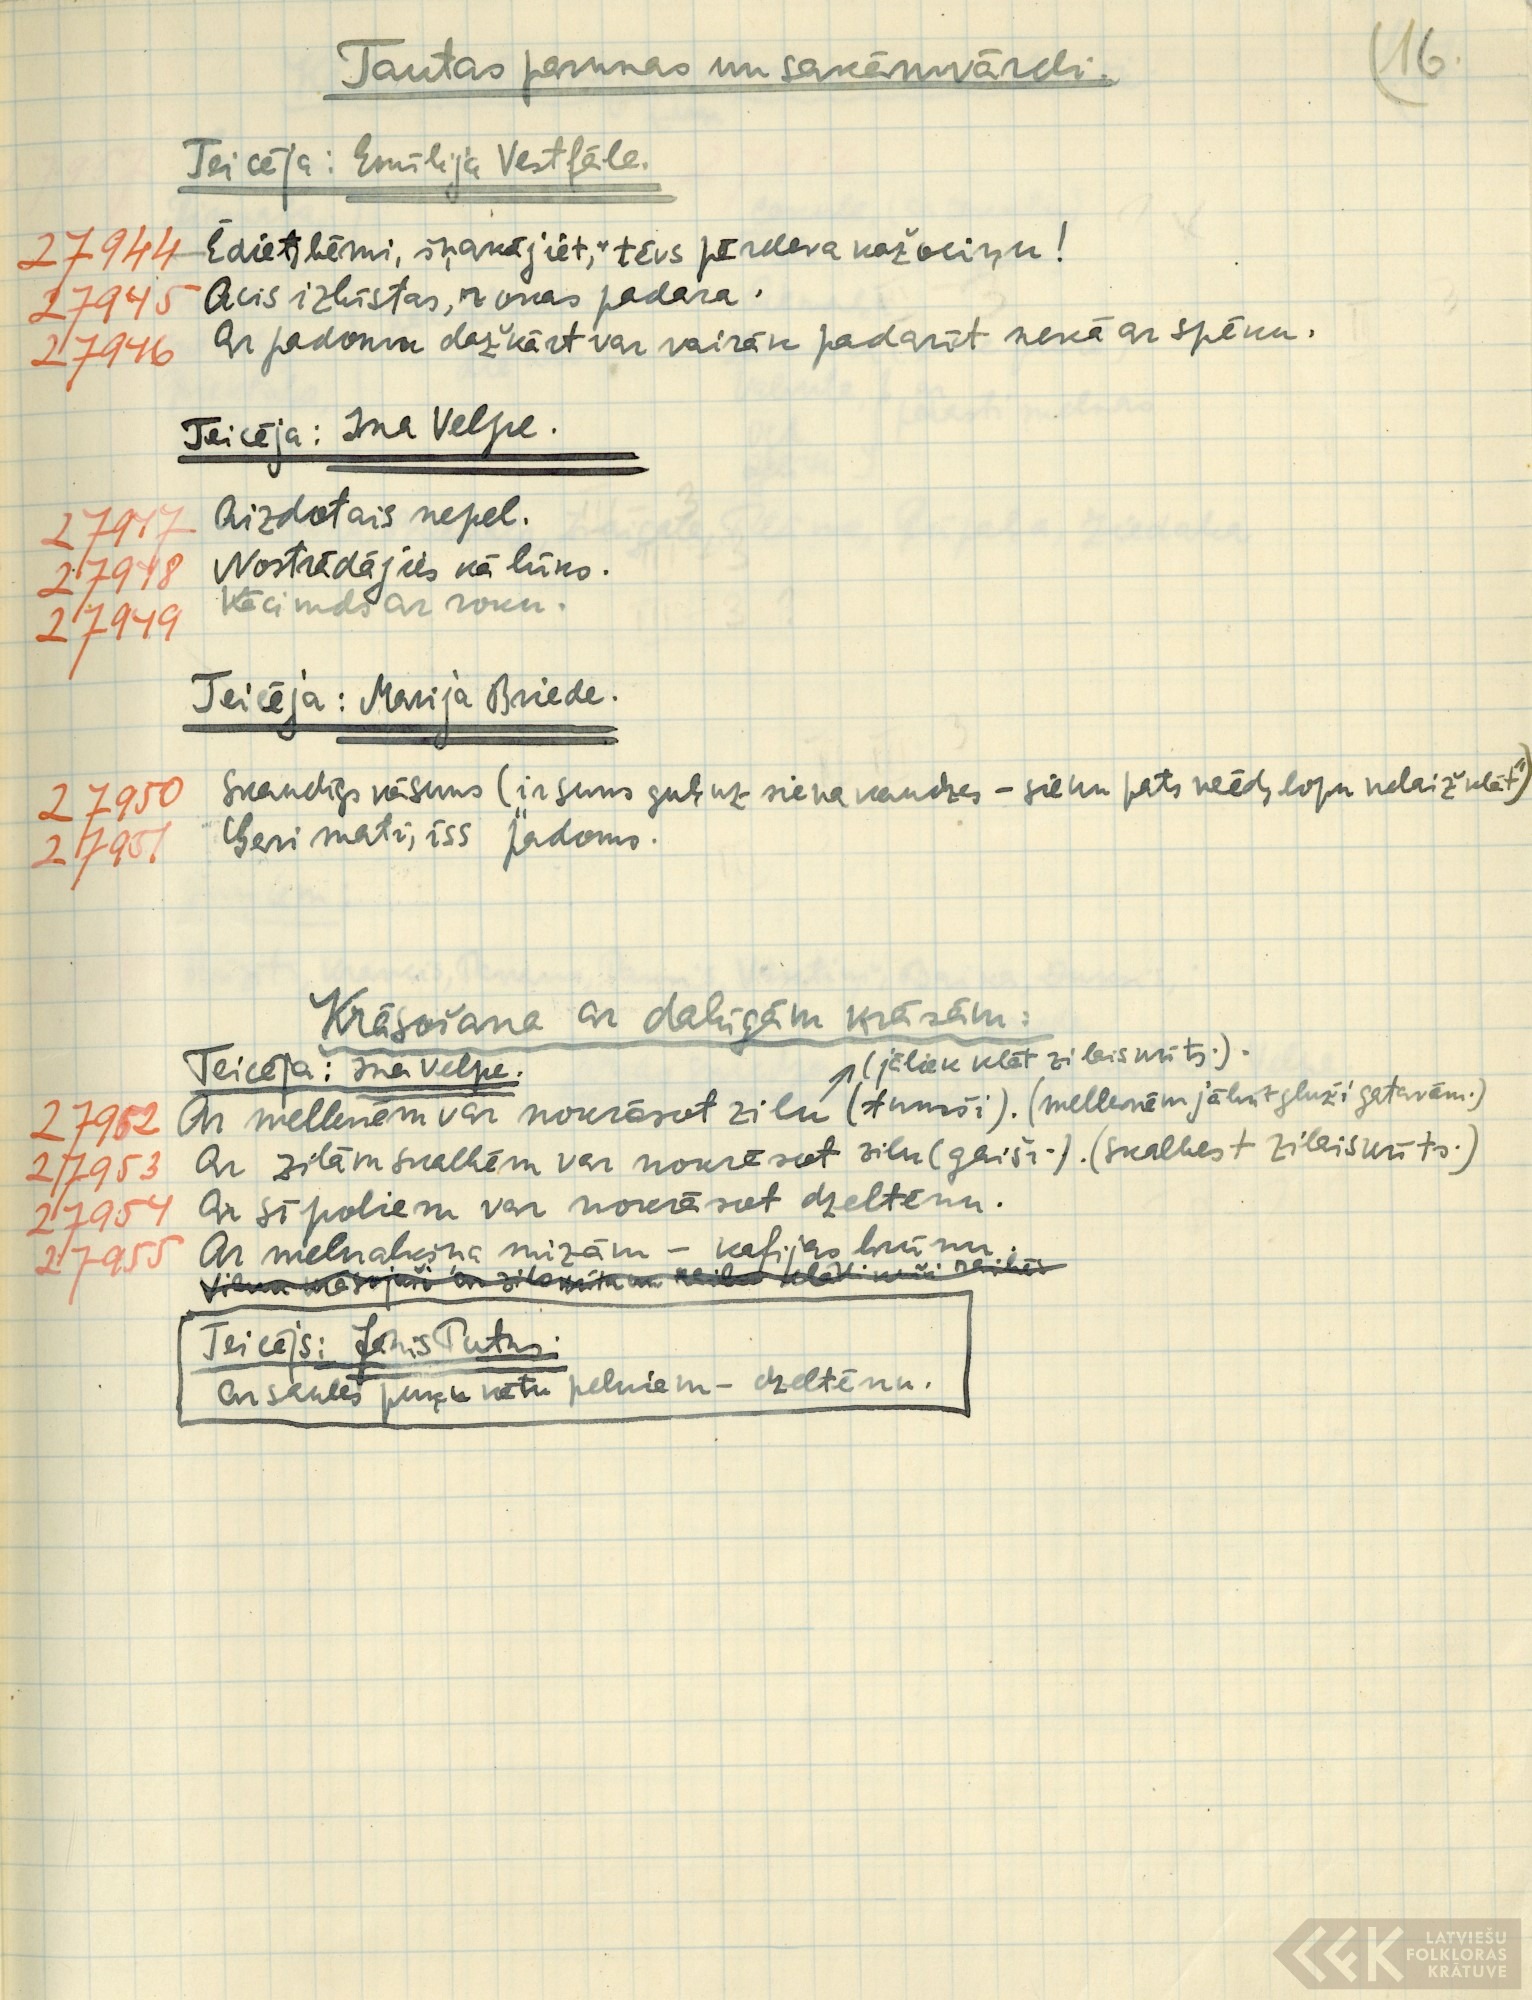 Tautas parunas un sakāmvārdi.
(16.
Teicēja: Emīlija Vestfāle.
27944 Ēdiet, bērni, šņakājiet, tēvs pārdeva kažociņu!
27945 Acis izbīstas, rokas padara.
27946 Ar padomu dažkārt var vairāk padarīt nekā ar spēku.
Teicēja: Ina Velpe.
27947 Aizdotais nepel.
27948 Nostrādājies kā lūks.
27949 Kā cimds ar roku.
Teicēja: Marija Briede.
27950 Skaudīgs kā suns (ir suns guļ uz siena kaudzes – sienu pats neēd, lopu nelaiž klāt")
27951 Gari mati, īss padoms.
Krāsošana ar dabīgām krāsām:
Teicēja: Ina Velpe.
(jāliek klāt zilais vīts.).
27952 Ar mellenēm var nokrāsot zilu (tumši). (mellenēm jābūt gluži gatavām.)
27953 Ar zilām skalbēm var nokrāsot zilu (gaiši.). (skalbes + zilais vīts.)
27954 Ar sīpoliem var nokrāsot dzeltenu.
27955 Ar melnalkšņa mizām – kafijas brūnu.
Teicējs: Jānis Putns.
Ar saules puķu kātu pelniem – dzeltēnu.
LATVIEŠU
FOLKLORAS
KRĀTUVE